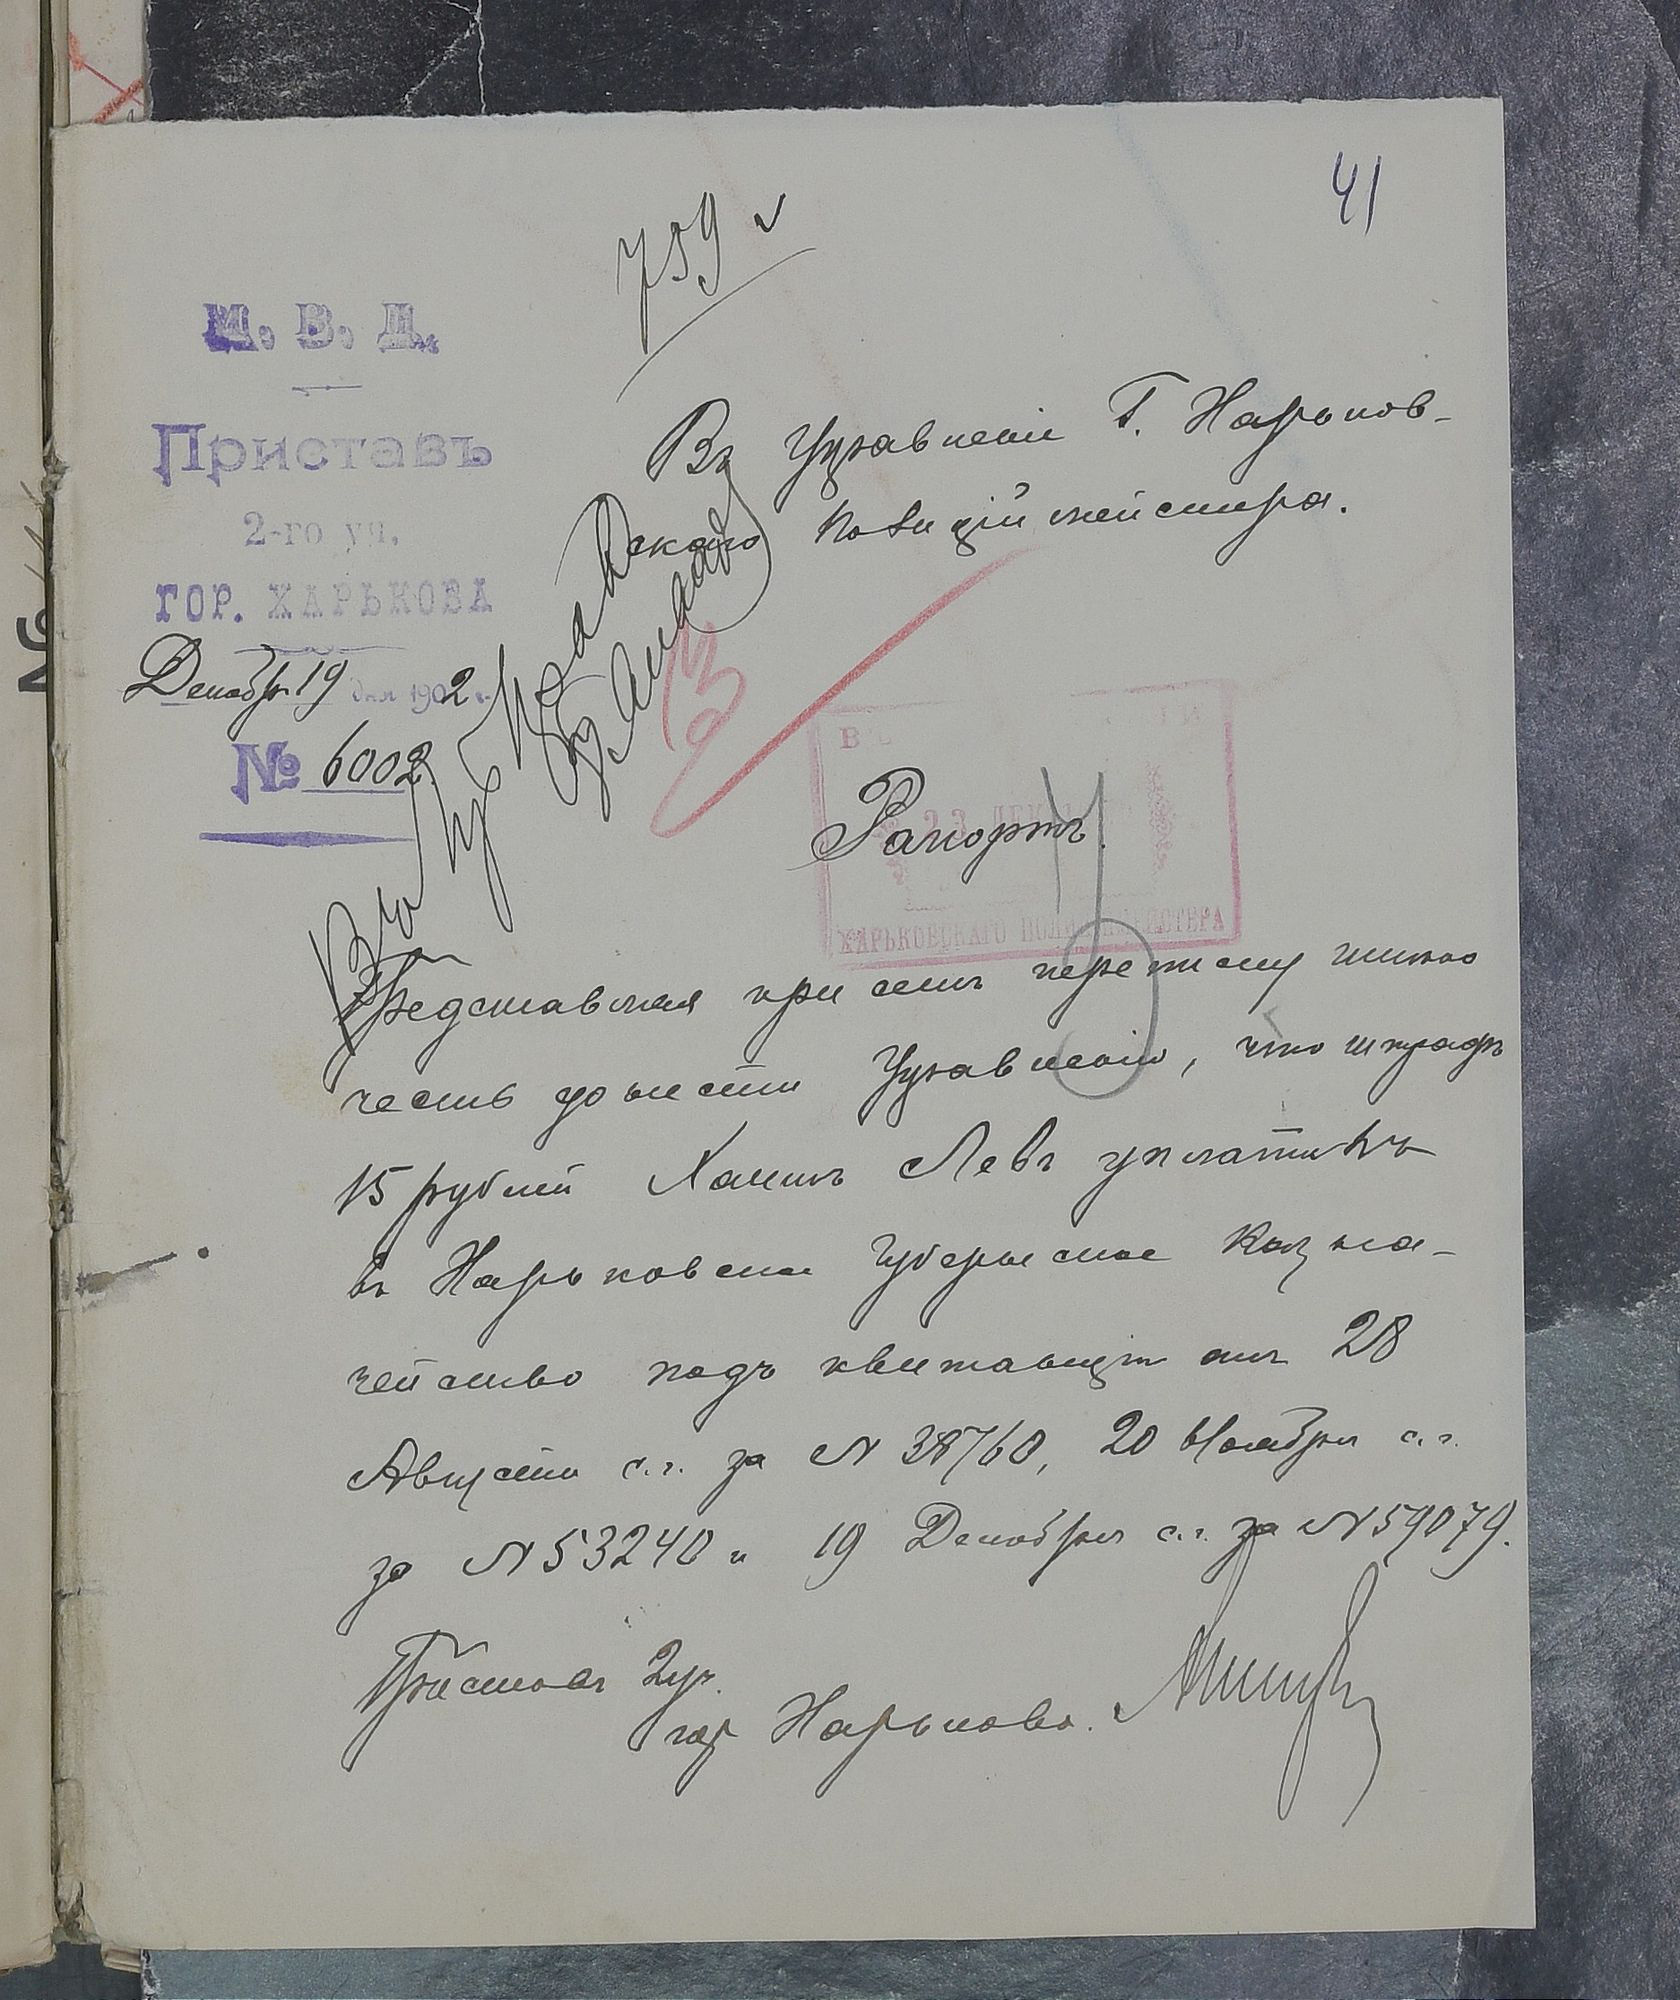 41
759
М. В. Д.
Приставъ
2-го уч.
ГОР. ХАРЬКОВА
Декабря 19 дня 1902 г.
№ 6002
Въ Управленіе Г. Харьков-
скаго Полиціймейстера.
23 ДЕК
ХАРЬКОВСКАГО ПОЛИЦІЙМЕЙСТЕРА
Рапортъ.
Представляя при семъ переписку имѣю
честь донести Управленію, что штрафъ
15 рублей Хаимъ Левъ уплатилъ
въ Харьковское Губернское Казна-
чейство подъ квитанціи отъ 28
Августа с.г. за N 38760, 20 Ноября с.г.
за N 53240 и 19 Декабря с.г. за N 59079.
Приставъ 2 уч.
гор Харькова.